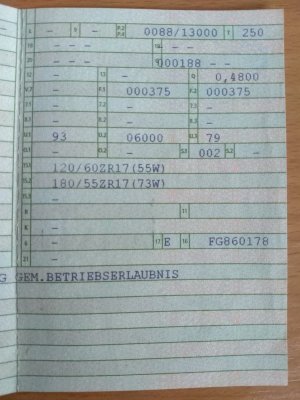 L - 9 - P.2 P.4 0088/13000 T 250
18 - - - 19 - - -
20 - - - G 000188 - -
12 - 13 - Q 0,4800
V.7 - F.1 000375 F.2 000375
7.1 - 7.2 - 7.3 -
8.1 - 8.2 - 8.3 -
U.1 93 U.2 06000 U.3 79
O.1 - O.2 - S.1 002 S.2 -
15.1 120/60ZR17(55W)
15.2 180/55ZR17(73W)
15.3 -
R - 11
K -
6 - 17 E 16 FG860178
21 -
G GEM.BETRIEBSERLAUBNIS